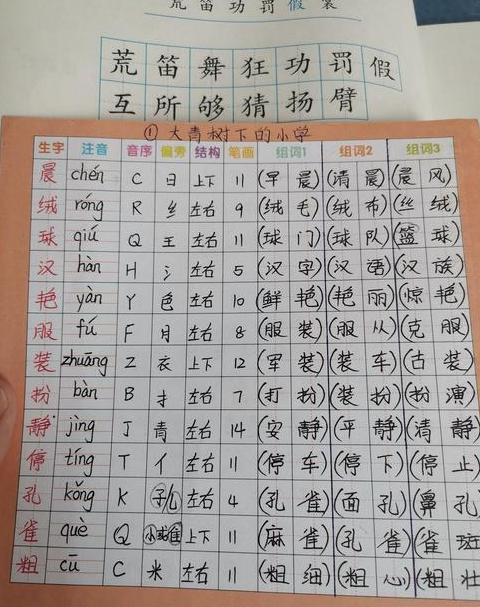 荒 笛 功 罚 假 裳
荒 笛 舞 狂 功 罚 假
互 所 够 猜 扬 臂
①大青树下的小学
生字 注音 音序 偏旁 结构 笔画 组词1 组词2 组词3
晨 chén C 日 上下 11 (早晨)(清晨)(晨风)
绒 róng R 纟 左右 9 (绒毛)(绒布)(丝绒)
球 qiú Q 王 左右 11 (球门)(球队)(篮球)
汉 hàn H 氵 左右 5 (汉字)(汉语)(汉族)
艳 yàn Y 色 左右 10 (鲜艳)(艳丽)(惊艳)
服 fú F 月 左右 8 (服装)(服从)(克服)
装 zhuāng Z 衣 上下 12 (军装)(装车)(古装)
扮 bàn B 扌 左右 7 (打扮)(装扮)(扮演)
静 jìng J 青 左右 14 (安静)(平静)(清静)
停 tíng T 亻 左右 11 (停车)(停下)(停止)
孔 kǒng K 子 乚 左右 4 (孔雀)(面孔)(鼻孔)
雀 què Q 小或隹 上下 11 (麻雀)(孔雀)(雀斑)
粗 cū C 米 左右 11 (粗细)(粗心)(粗壮)